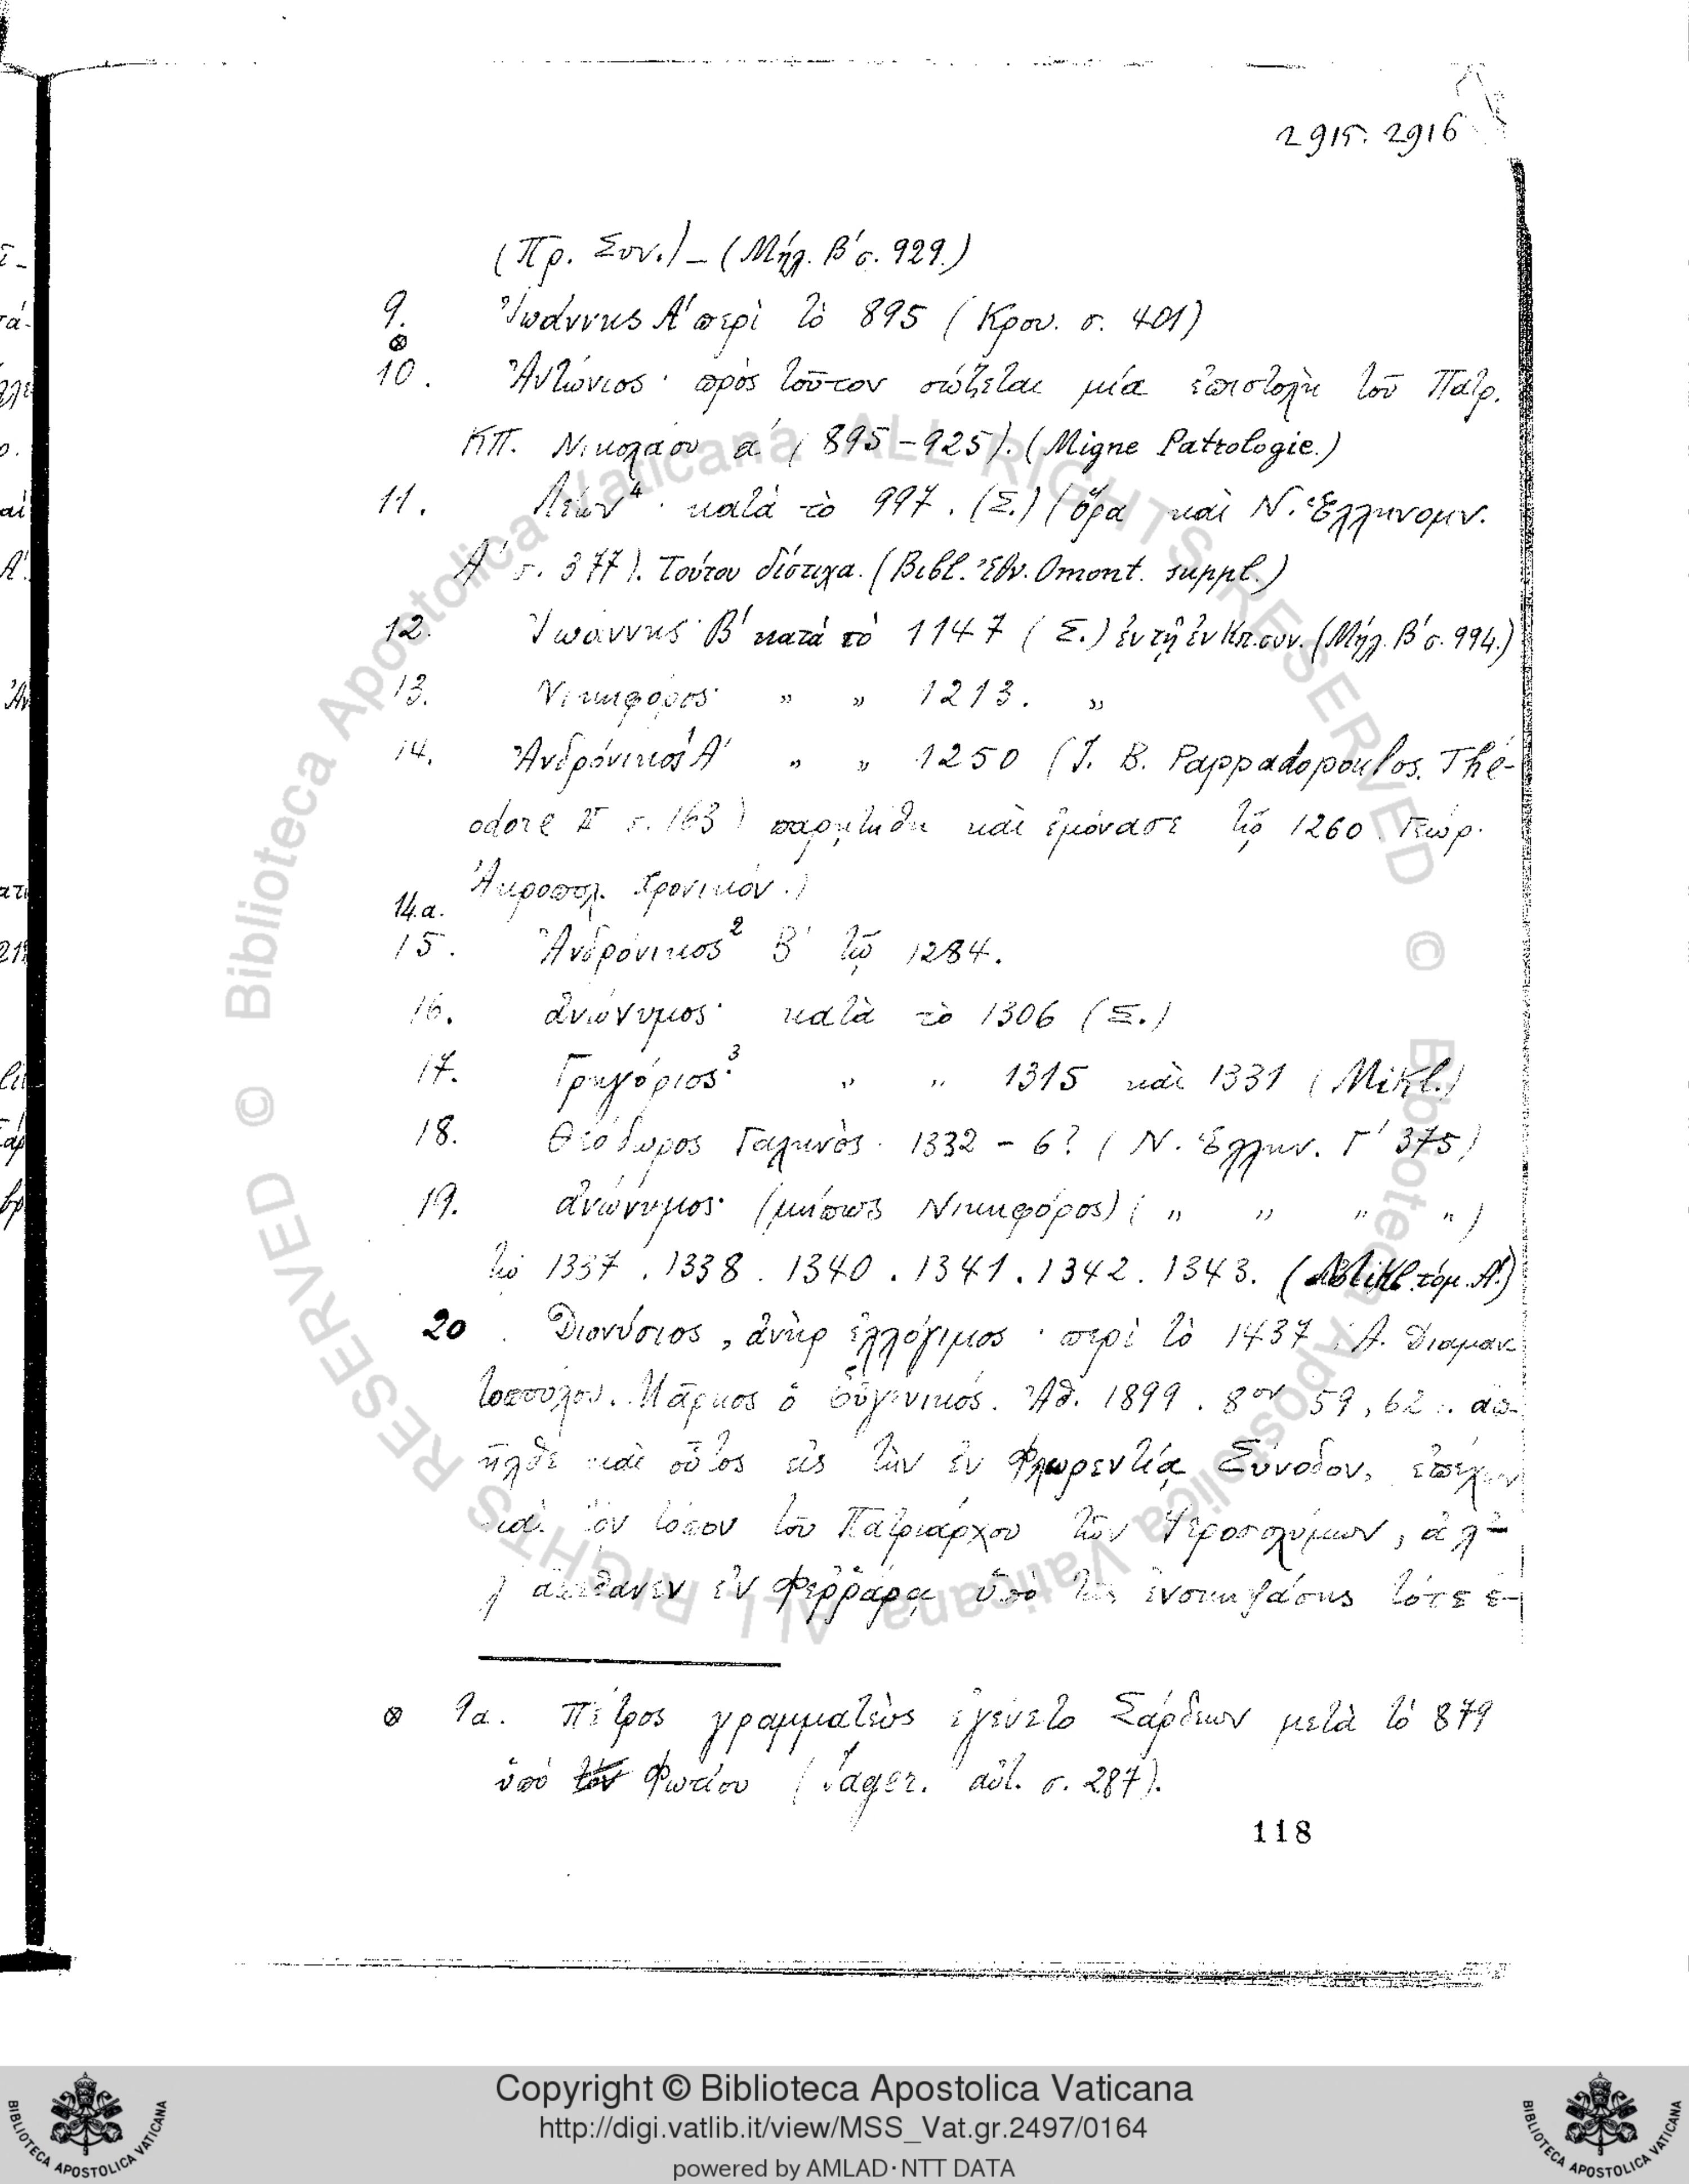 2915. 2916
(Πρ. Συν.) – (Μηλ. Β´ σ. 929.)
9. Ἰωάννης Α´ περὶ τὸ 895 (Κρου. σ. 401)
⊗
10. Ἀντώνιος· πρὸς τοῦτον σώζεται μία ἐπιστολὴ τοῦ Πατρ.
ΚΠ. Νικολάου α´ (895-925). (Migne Patrologie.)
11. Λέων⁴· κατὰ τὸ 997. (Σ.) (ὅρα καὶ Ν. Ἑλληνομν.
Α´ σ. 377). Τούτου δίστιχα. (Βιβλ. Ἐθν. Omont. suppl.)
12. Ἰωάννης Β´ κατὰ τὸ 1147 (Σ.) ἐν τῇ ἐν Κπ. συν. (Μηλ. Β´ σ. 994.)
13. Νικηφόρος· „ „ 1213. „
14. Ἀνδρόνικος¹ Α´ „ „ 1250 (J. B. Pappadopoulos. Thé-
odore II σ. 163) παρῃτήθη καὶ ἐμόνασε τῷ 1260. Γεώρ.
Ἀκροπολ. Χρονικόν.)
14.α.
15. Ἀνδρόνικος² Β´ τῷ 1284.
16. ἀνώνυμος· κατὰ τὸ 1306 (Σ.)
17. Γρηγόριος³· „ „ 1315 καὶ 1331 (Mikl.)
18. Θεόδωρος Γαληνὸς· 1332 - 6? (Ν. Ἑλλην. Γ´ 375)
19. ἀνώνυμος· (μήπως Νικηφόρος) ( „ „ „ „ )
τῷ 1337. 1338. 1340. 1341. 1342. 1343. (Mikl. τόμ. Α´.)
20. Διονύσιος, ἀνὴρ ἐλλόγιμος· περὶ τὸ 1437. Α. Διαμαν
τοπούλου. Μᾶρκος ὁ Εὐγενικός. Ἀθ. 1899. 8ον 59, 62. ἀπ-
ῆλθε καὶ οὗτος εἰς τὴν ἐν Φλωρεντίᾳ Σύνοδον,
τὸν τόπον τοῦ Πατριάρχου τῶν Ἱεροσολύμων, ἀλ-
λ´ ἀπέθανεν ἐν Φερράρᾳ ὑπὸ τῆς ἐνσκηψάσης τότε ἐ-
⊗ 9α. Πέτρος γραμματεὺς ἐγένετο Σάρδεων μετὰ τὸ 879
ὑπὸ τὸν Φωτίου (Jager. αὐτ. σ. 287).
118
© Biblioteca Apostolica Vaticana ALL RIGHTS RESERVED © Biblioteca Apostolica Vaticana ALL RIGHTS RESERVED
Copyright © Biblioteca Apostolica Vaticana
http://digi.vatlib.it/view/MSS_Vat.gr.2497/0164
powered by AMLAD·NTT DATA
BIBLIOTECA APOSTOLICA VATICANA
BIBLIOTECA APOSTOLICA VATICANA